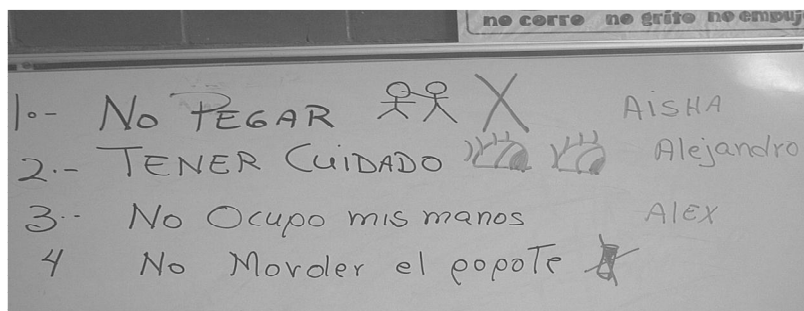 no corro no grito no empuj
1.- No PEGAR AISHA
2.- TENER CUIDADO Alejandro
3.- No Ocupo mis manos ALEX
4 No Morder el popote